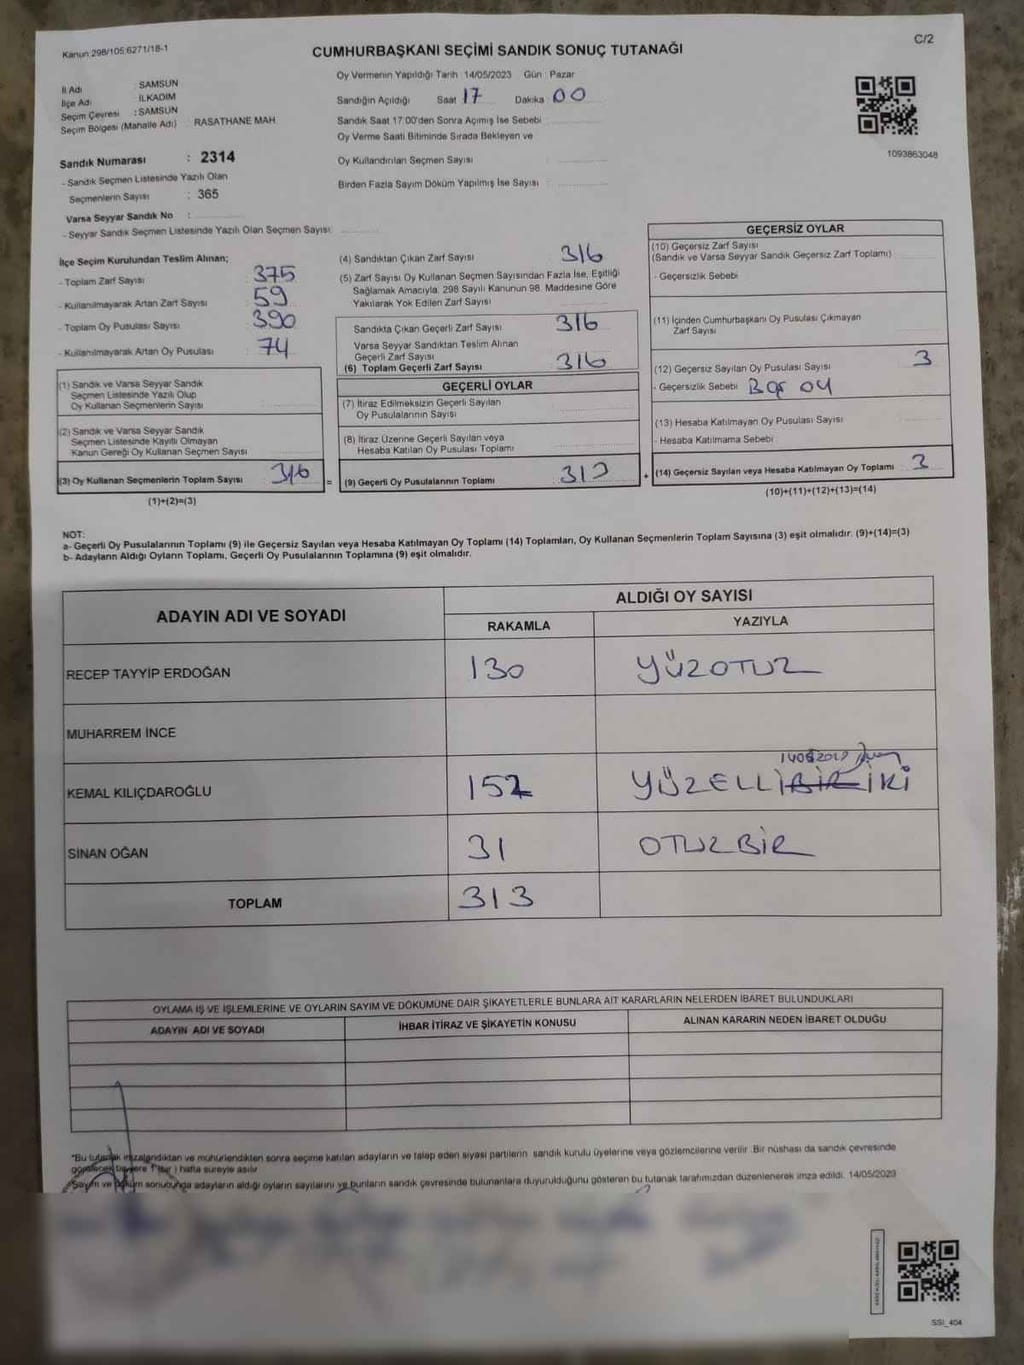 Kanun 298/105 6271/18-1
C/2
CUMHURBAŞKANI SEÇİMİ SANDIK SONUÇ TUTANAĞI
İl Adı SAMSUN
İlçe Adı İLKADIM
Seçim Çevresi : SAMSUN
Seçim Bölgesi (Mahalle Adı) RASATHANE MAH.
Sandık Numarası : 2314
- Sandık Seçmen Listesinde Yazılı Olan
Seçmenlerin Sayısı : 365
Varsa Seyyar Sandık No :
- Seyyar Sandık Seçmen Listesinde Yazılı Olan Seçmen Sayısı:
Oy Vermenin Yapıldığı Tarih 14/05/2023 Gün : Pazar
Sandığın Açıldığı Saat 17 Dakika 00
Sandık Saat 17:00'den Sonra Açımış İse Sebebi
Oy Verme Saati Bitiminde Sırada Bekleyen ve
Oy Kullandırılan Seçmen Sayısı
Birden Fazla Sayım Döküm Yapılmış İse Sayısı
1093863048
İlçe Seçim Kurulundan Teslim Alınan;
- Toplam Zarf Sayısı 375
- Kullanılmayarak Artan Zarf Sayısı 59
- Toplam Oy Pusulası Sayısı 390
- Kullanılmayarak Artan Oy Pusulası 74
(1) Sandık ve Varsa Seyyar Sandık
Seçmen Listesinde Yazılı Olup
Oy Kullanan Seçmenlerin Sayısı
(2) Sandık ve Varsa Seyyar Sandık
Seçmen Listesinde Kayıtlı Olmayan
Kanun Gereği Oy Kullanan Seçmen Sayısı
(3) Oy Kullanan Seçmenlerin Toplam Sayısı 316 =
(1)+(2)=(3)
(4) Sandıktan Çıkan Zarf Sayısı 316
(5) Zarf Sayısı Oy Kullanan Seçmen Sayısından Fazla İse, Eşitliği
Sağlamak Amacıyla, 298 Sayılı Kanunun 98. Maddesine Göre
Yakılarak Yok Edilen Zarf Sayısı
Sandıkta Çıkan Geçerli Zarf Sayısı 316
Varsa Seyyar Sandıktan Teslim Alınan
Geçerli Zarf Sayısı
(6) Toplam Geçerli Zarf Sayısı 316
GEÇERLİ OYLAR
(7) İtiraz Edilmeksizin Geçerli Sayılan
Oy Pusulalarının Sayısı
(8) İtiraz Üzerine Geçerli Sayılan veya
Hesaba Katılan Oy Pusulası Toplamı
(9) Geçerli Oy Pusulalarının Toplamı 313 +
GEÇERSİZ OYLAR
(10) Geçersiz Zarf Sayısı
(Sandık ve Varsa Seyyar Sandık Geçersiz Zarf Toplamı)
- Geçersizlik Sebebi
(11) İçinden Cumhurbaşkanı Oy Pusulası Çıkmayan
Zarf Sayısı
(12) Geçersiz Sayılan Oy Pusulası Sayısı 3
- Geçersizlik Sebebi BOŞ OY
(13) Hesaba Katılmayan Oy Pusulası Sayısı
- Hesaba Katılmama Sebebi
(14) Geçersiz Sayılan veya Hesaba Katılmayan Oy Toplamı 3
(10)+(11)+(12)+(13)=(14)
NOT:
a- Geçerli Oy Pusulalarının Toplamı (9) ile Geçersiz Sayılan veya Hesaba Katılmayan Oy Toplamı (14) Toplamları, Oy Kullanan Seçmenlerin Toplam Sayısına (3) eşit olmalıdır. (9)+(14)=(3)
b- Adayların Aldığı Oyların Toplamı, Geçerli Oy Pusulalarının Toplamına (9) eşit olmalıdır.
ADAYIN ADI VE SOYADI
ALDIĞI OY SAYISI
RAKAMLA YAZIYLA
RECEP TAYYİP ERDOĞAN 130 YÜZOTUZ
MUHARREM İNCE
KEMAL KILIÇDAROĞLU 152 YÜZELLİBİRİKİ
SİNAN OĞAN 31 OTUZBİR
TOPLAM 313
OYLAMA İŞ VE İŞLEMLERİNE VE OYLARIN SAYIM VE DÖKÜMÜNE DAİR ŞİKAYETLERLE BUNLARA AİT KARARLARIN NELERDEN İBARET BULUNDUKLARI
ADAYIN ADI VE SOYADI İHBAR İTİRAZ VE ŞİKAYETİN KONUSU ALINAN KARARIN NEDEN İBARET OLDUĞU
*Bu tutanak imzalandıktan ve mühürlendikten sonra seçime katılan adayların ve talep eden siyasi partilerin sandık kurulu üyelerine veya gözlemcilerine verilir. Bir nüshası da sandık çevresinde
hafta süreyle asılır
Sayım ve döküm sonucunda adayların aldığı oyların sayılarını ve bunların sandık çevresinde bulunanlara duyurulduğunu gösteren bu tutanak tarafımızdan düzenlenerek imza edildi. 14/05/2023
SSI_404